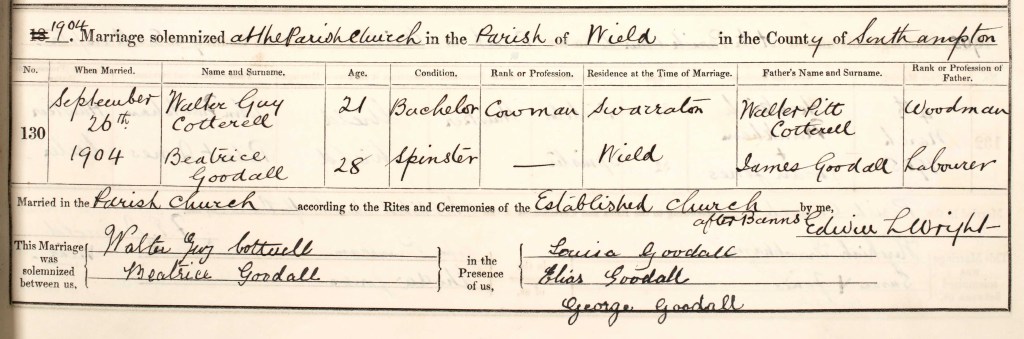 18 1904. Marriage solemnized at the Parish Church in the Parish of Wield in the County of Southampton
No. When Married. Name and Surname. Age. Condition. Rank or Profession. Residence at the Time of Marriage. Father's Name and Surname. Rank or Profession of Father.
130 September 26th 1904 Walter Guy Cotterell 21 Bachelor Cowman Swarraton Walter Pitt Cotterell Woodman
Beatrice Goodall 28 Spinster — Wield James Goodall Labourer
Married in the Parish Church according to the Rites and Ceremonies of the Established Church after Banns by me, Edwin L Wright
This Marriage was solemnized between us, Walter Guy Cotterell Beatrice Goodall in the Presence of us, Louisa Goodall Elias Goodall George Goodall